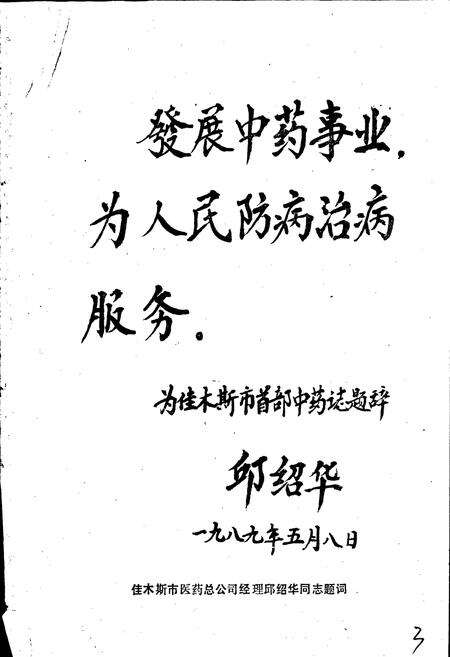 發展中药事业，
为人民防病治病
服务。
为佳木斯市首部中药誌题辞
邱绍华
一九八九年五月八日
佳木斯市医药总公司经理邱绍华同志题词
3